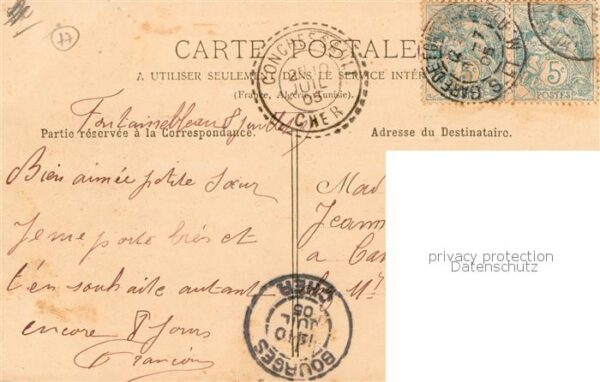 77
CARTE POSTALE
A UTILISER SEULEMENT DANS LE SERVICE INTÉR
(France, Algérie, Tunisie).
CHER
JUIL
05
5c
5c
POSTES
GARE DE
Fontainebleau 8 Juillet
Partie réservée à la Correspondance.
Adresse du Destinataire.
Bien aimée petite Sœur
Je me porte très et
t'en souhaite autant
encore 8 Jours
Mad
Jeann
a Can
privacy protection
Datenschutz
BOURGES
10
JUIL
05
CHER